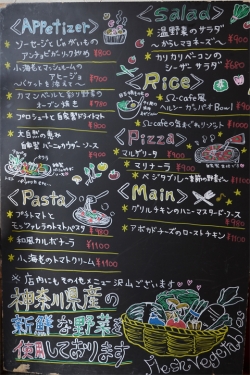 <Appetizer>
ソーセージとじゃがいもの
アンチョビガーリック炒め ¥800
小海老とマッシュルームの
アヒージョ
~バケットを添えて~ ¥780
カマンベールと彩り野菜の
オーブン焼き ¥780
プロシュートと自家製ドライトマト
¥800
大自然の恵み
自家製バーニャカウダーソース
¥900
<Pasta>
プチトマトと
モッツァレラのトマトパスタ ¥980
和風カルボナーラ
¥1100
小海老のトマトクリーム ¥1100
<Salad>
温野菜のサラダ
~からしマヨネーズ~ ¥900
カリカリベーコンの
シーザーサラダ ¥680
<Rice>
cafe風
ヘルシーガパオBowl!
¥900
cafeの気まぐれリゾット ¥1000
<Pizza>
マルゲリータ ¥900
マリナーラ ¥900
ベジタブル
¥1100
<Main>
グリルチキンのハニーマスタードソース
¥980
アボガドチーズのローストチキン
¥1100
※店内にもその他メニュー沢山ございます
神奈川県産の
新鮮な野菜を
使用しております
Fresh Vegetables